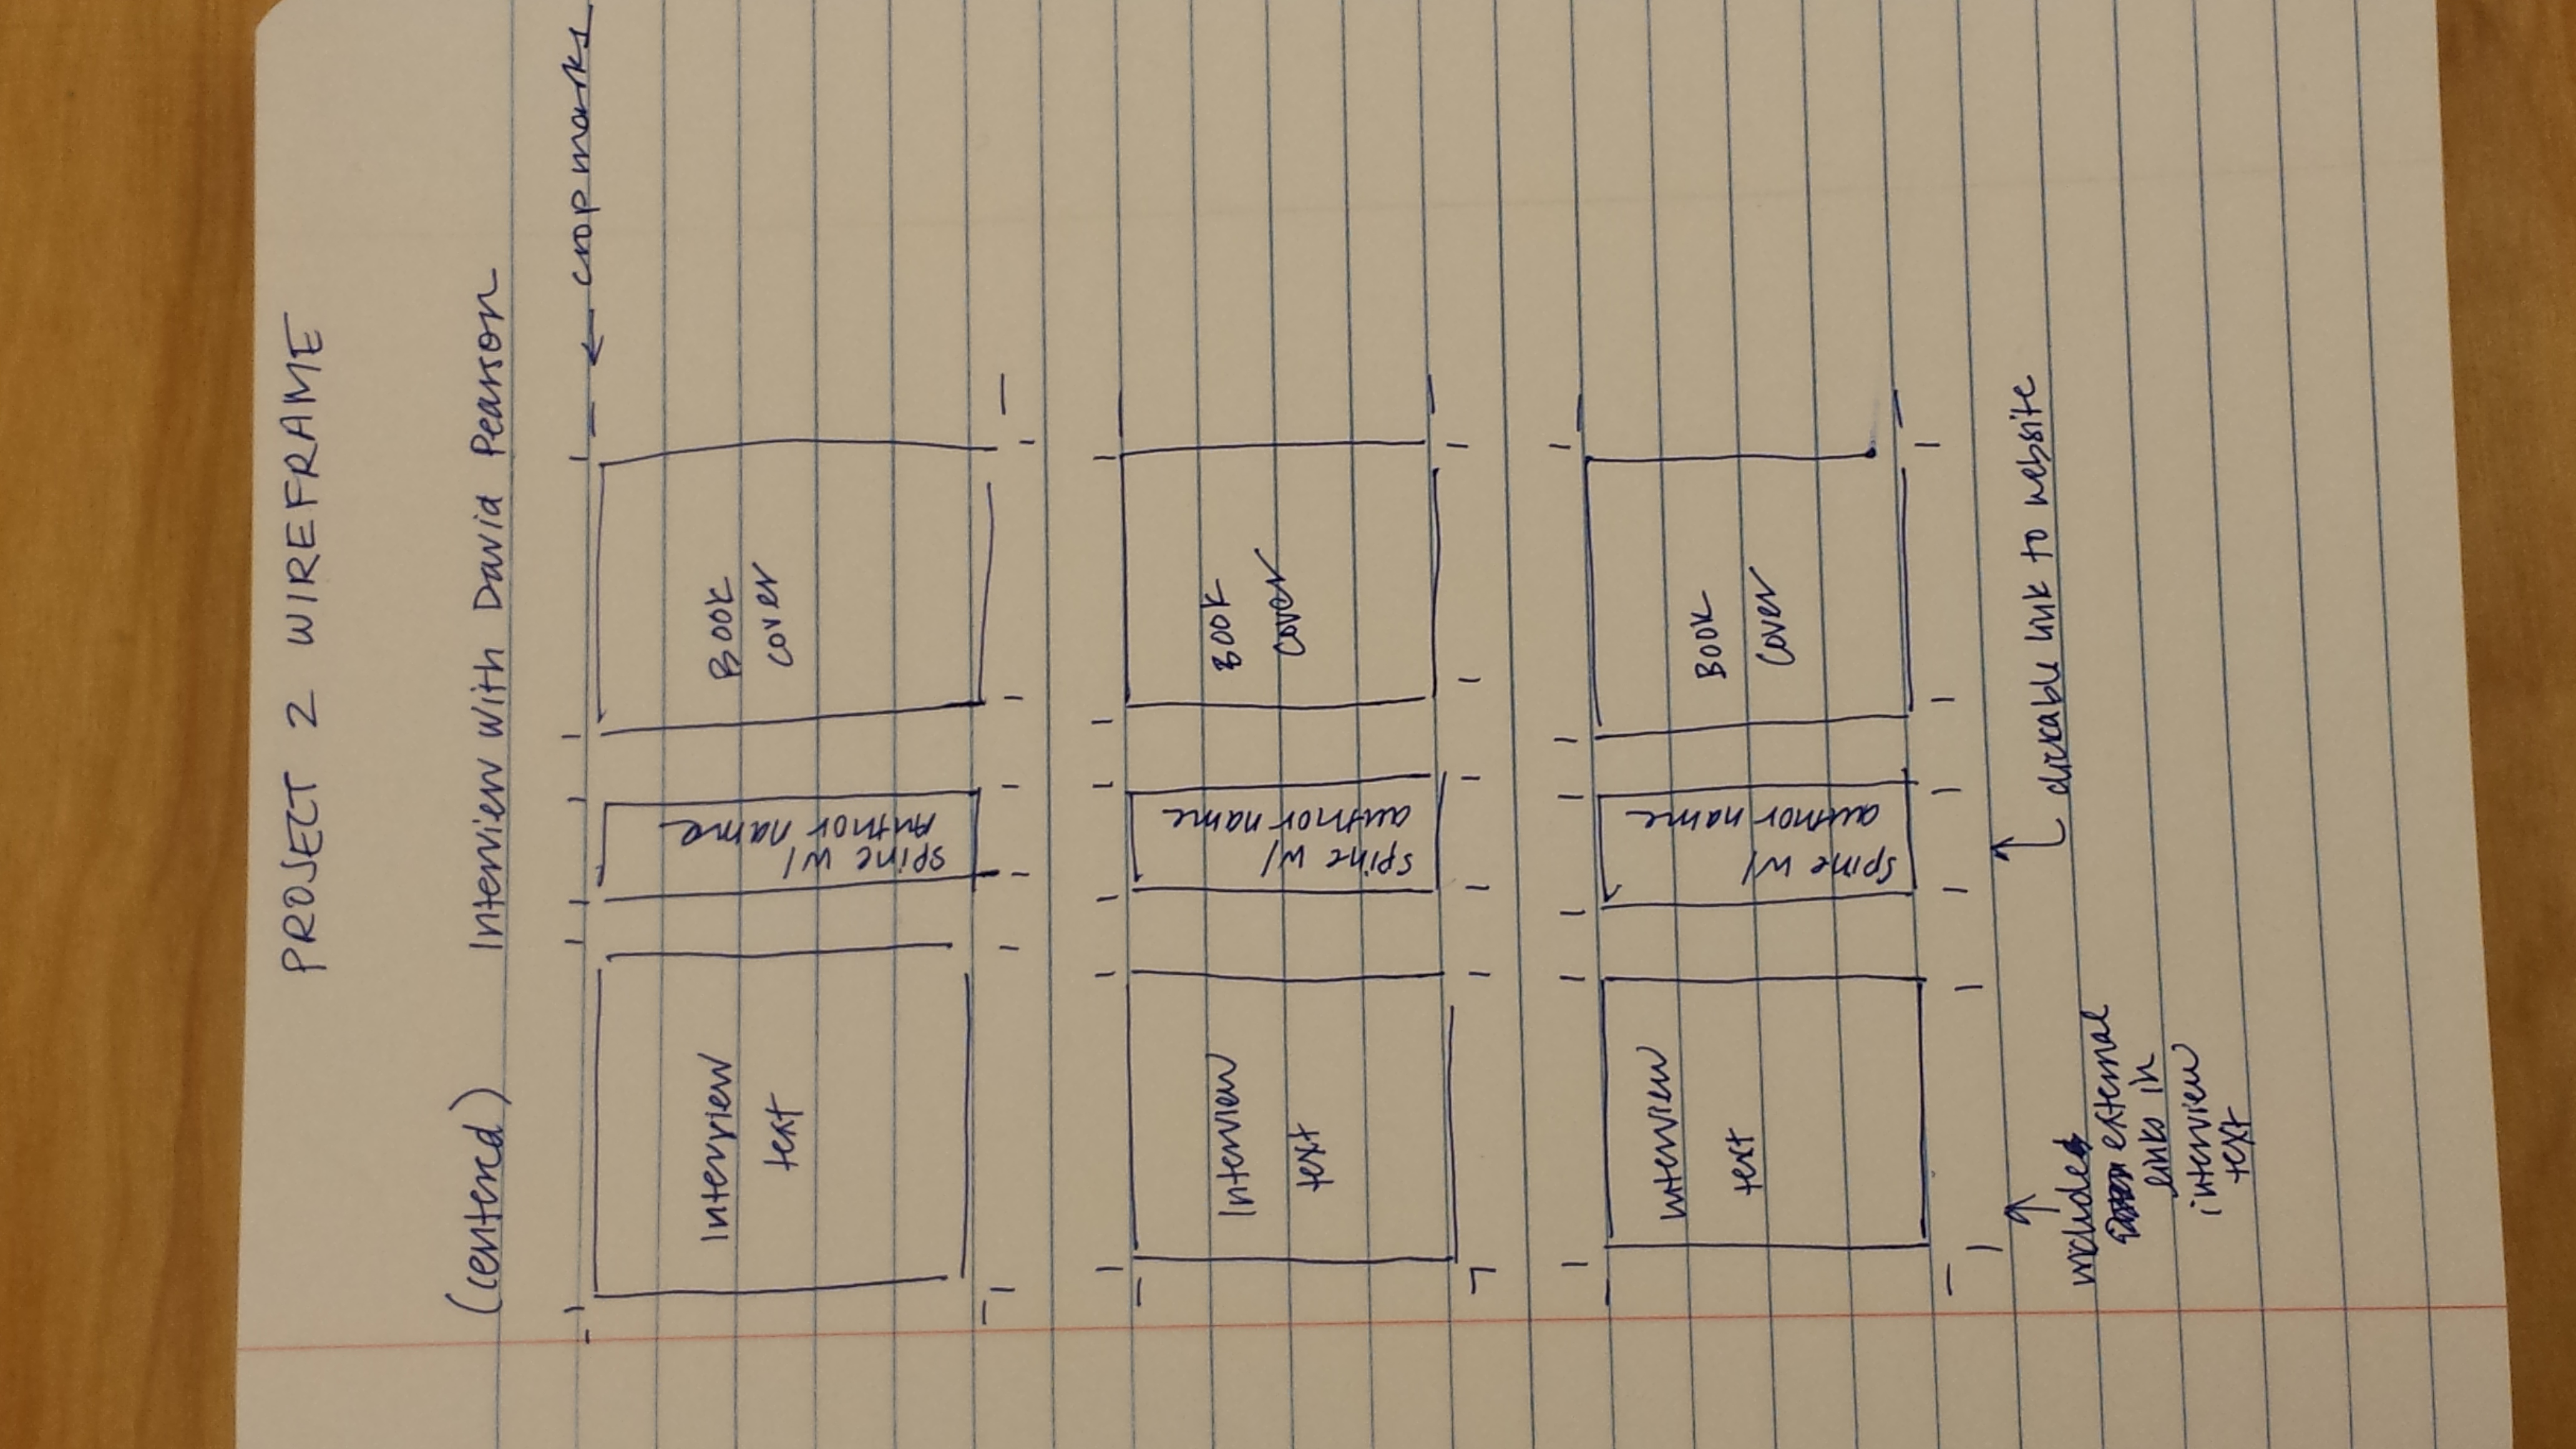 PROJECT 2 WIREFRAME
(centered) Interview with David Pearson
← crop marks
Interview
text
spine w/
Author name
Book
cover
Interview
text
spine w/
author name
Book
cover
interview
text
spine w/
author name
Book
cover
includes
external
links in
interview
text
clickable link to website